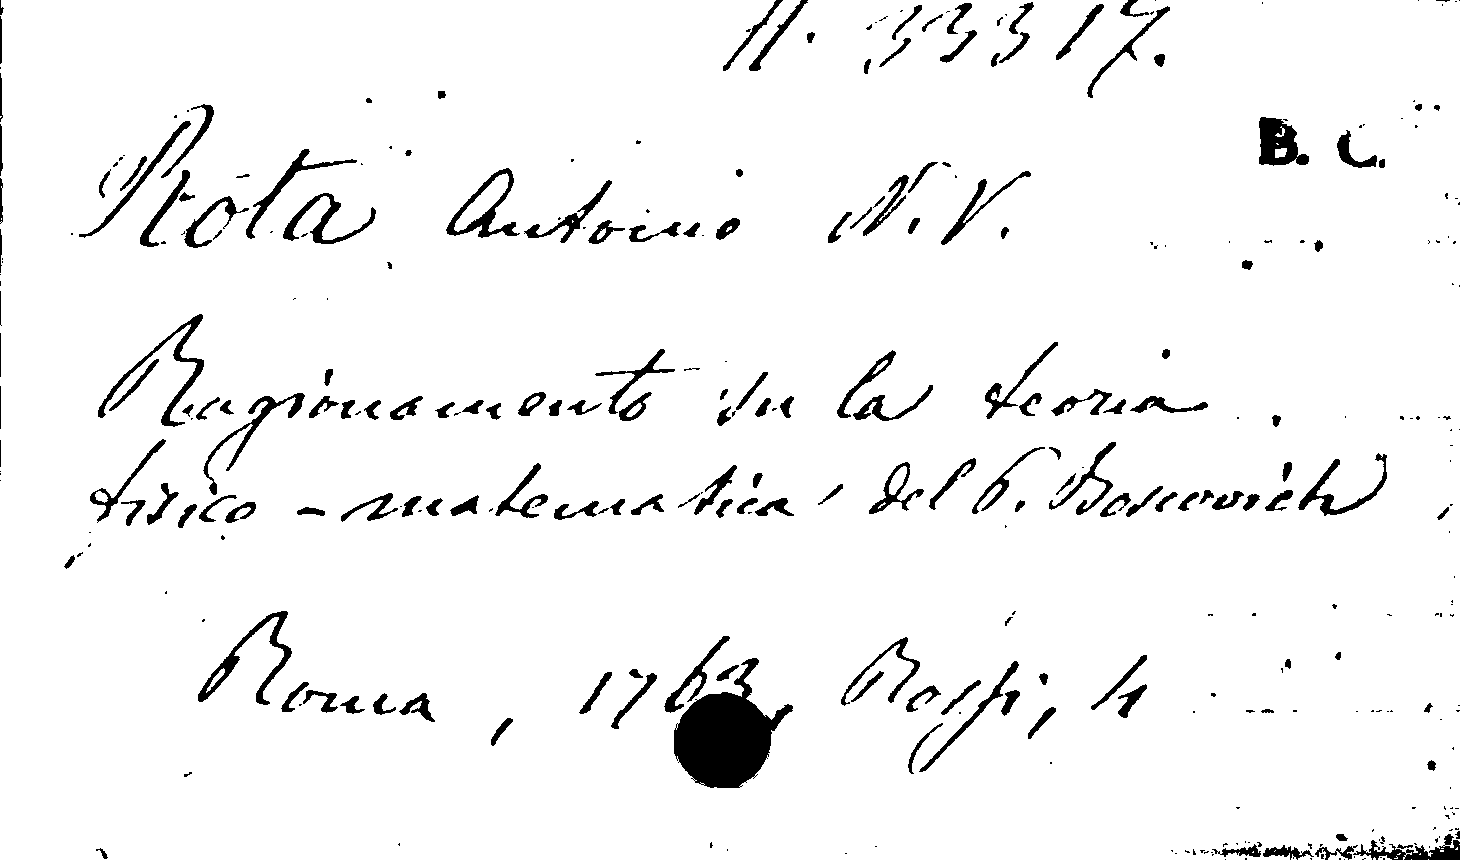 A. 33317.
B. C.
Rota Antonio N. V.
Ragionamento su la teoria
fisico - matematica del P. Boscovich
Roma, 1763, Rossi, 4